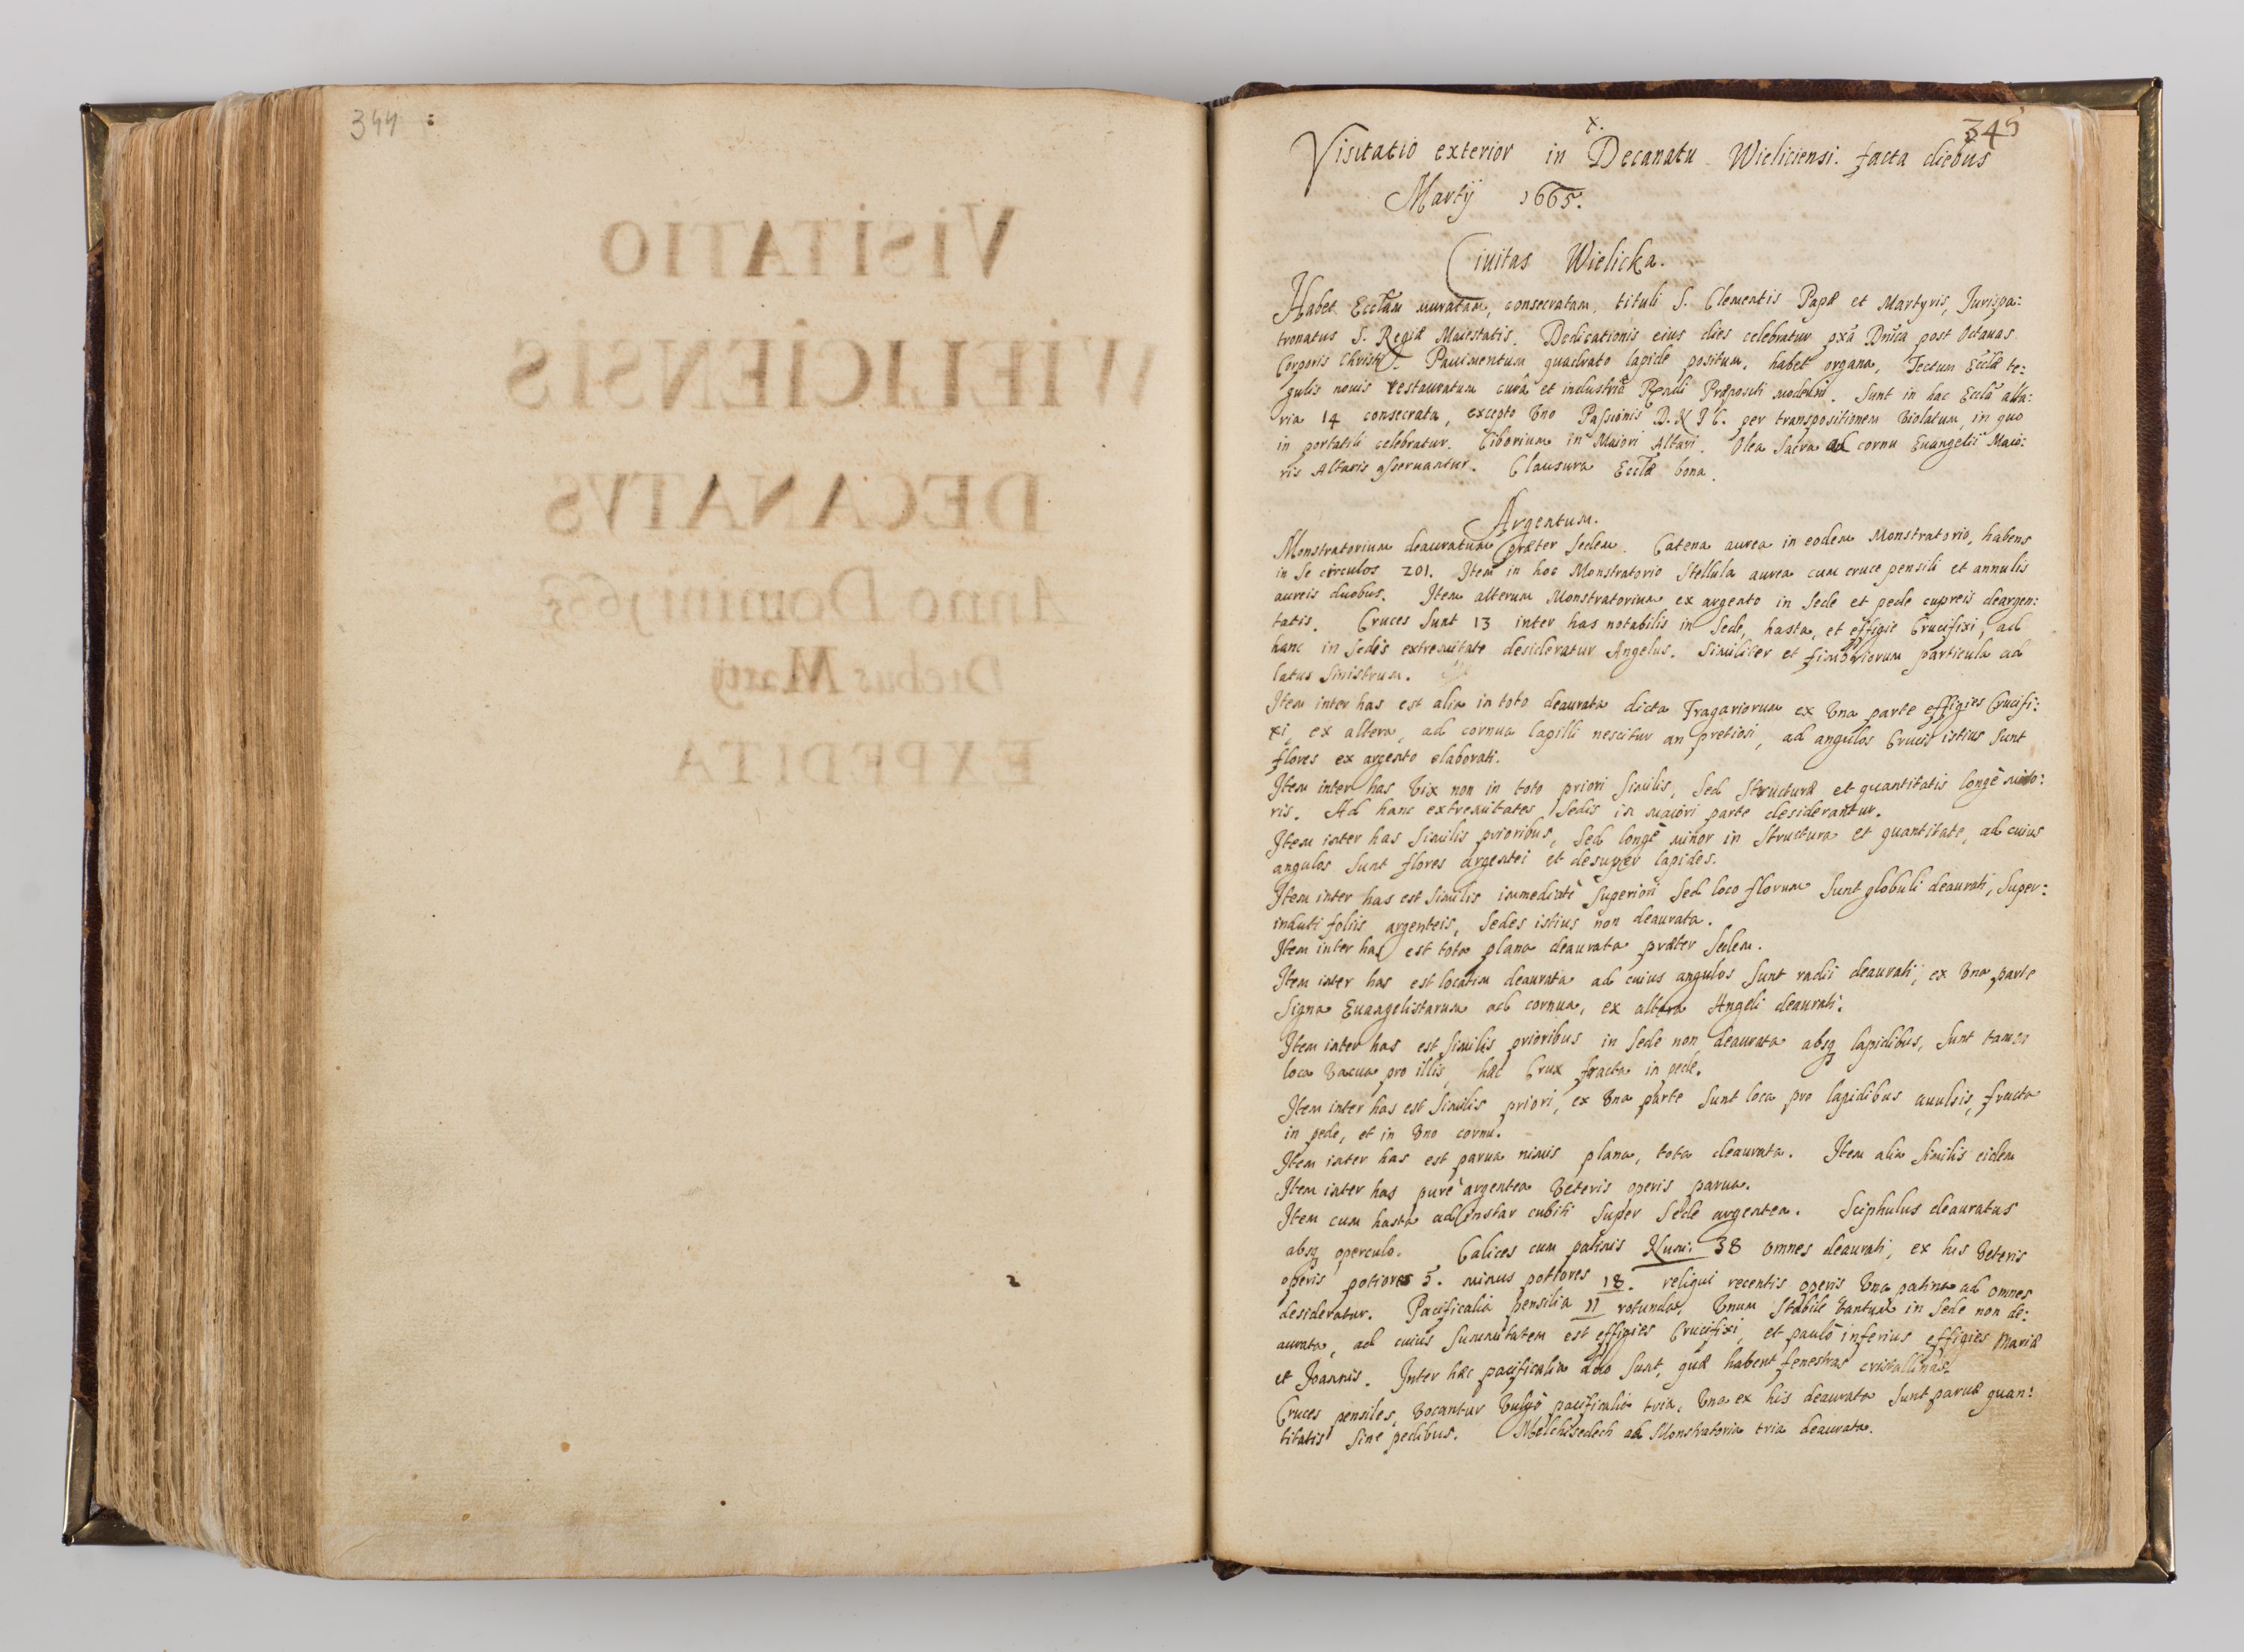 344
VISITATIO
WIELICIENSIS
DECANATVS
Anno Domini 1665
Diebus Martij
EXPEDITA
345
Visitatio exterior in Decanatu Wieliciensi. facta diebus
Martij 1665.
Ciuitas Wielicka.
Habet Eccl̃am muratam, consecratam, tituli S. Clementis Papæ et Martyris, Jurispa:
tronatus S. Regiæ Maiestatis. Dedicationis eius dies celebratur pxã Dñica post Octauas
Corporis Christi. Pauimentum quadrato lapide positum, habet organa, Tectum Eccl̃æ te:
gulis nouis restauratum curâ et industriâ Rẽndi Præpositi moderni. Sunt in hac Eccl̃a alta:
ria 14 consecrata, excepto Vno Passionis D. N. J. C. per transpositionem Violatum, in quo
in portatili celebratur. Ciborium in Maiori Altari. Olea Sacra ad cornu Euangelii Maio:
ris Altaris asseruantur. Clausura Eccl̃æ bona.
Argentum.
Monstratorium deauratum præter Sedem. Catena aurea in eodem Monstratorio, habens
in Se circulos 201. Item in hoc Monstratorio Stellula aurea cum cruce pensili et annulis
aureis duobus. Item alterum Monstratorium ex argento in Sede et pede cupreis deargen:
tatis. Cruces Sunt 13 inter has notabilis in Sede, hasta, et effigie Crucifixi, ad
hanc in Sedis extremitate desideratur Angelus. Similiter et fimbriorum particula ad
latus Sinistrum.
Item inter has est alia in toto deaurata dicta Tragariorum ex Vna parte effigies Crucifi:
xi, ex altera, ad cornua lapilli nescitur an pretiosi, ad angulos Crucis istius Sunt
flores ex argento elaborati.
Item inter has Vix non in toto priori Similis, Sed Structuræ et quantitatis longè mino:
ris. Ad hanc extremitates Sedis in maiori parte desiderantur.
Item inter has Similis prioribus, Sed longè minor in Structura et quantitate, ad cuius
angulos Sunt flores argentei et desuper lapides.
Item inter has est Similis immediatè Superiori Sed loco florum Sunt globuli deaurati, Super:
induti foliis argenteis, Sedes istius non deaurata.
Item inter has est tota plana deaurata præter Sedem.
Item inter has est locatim deaurata ad cuius angulos Sunt radii deaurati, ex Vna parte
Signa Euangelistarum ad cornua, ex altera Angeli deaurati.
Item inter has est Similis prioribus in Sede non deaurata absq lapidibus, Sunt tamen
loca Vacua pro illis, hæc Crux fracta in pede.
Item inter has est Similis priori, ex Vna parte Sunt loca pro lapidibus auulsis, fracta
in pede, et in Vno cornu.
Item inter has est parua nimis plana, tota deaurata. Item alia Similis eidem
Item inter has purè argentea Veteris operis parua.
Item cum hasta ad instar cubiti Super Sede argentea. Sciphulus deauratus
absq operculo. Calices cum patinis Num: 38 omnes deaurati, ex his Veteris
operis potiores 5. minus potiores 18. reliqui recentis operis Vna patina ad omnes
desideratur. Pacificalia pensilia 11 rotunda, Vnum Stabile tantum in Sede non de:
aurata, ad cuius Summitatem est effigies Crucifixi, et paulò inferius effigies Mariæ
et Joannis. Inter hæc pacificalia duo Sunt, quæ habent fenestras cristallinas.
Cruces pensiles, Vocantur Vulgò pacificalia tria, Vna ex his deaurata Sunt paruæ quan:
titatis Sine pedibus. Melchisedech ad Monstratoria tria deaurata.